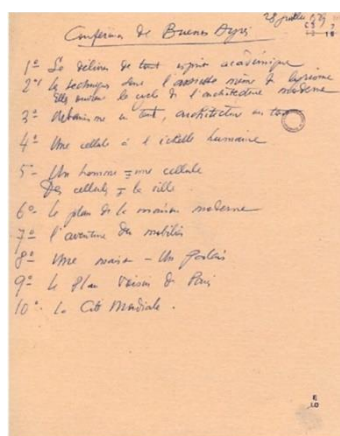 28 juillet 1929
Conférence de Buenos Ayres
C3 7
18
1° Se délivrer de tout esprit académique
2° les techniques sont l'assiette même du lyrisme
elles ouvrent le cycle de l'architecture moderne
3° Urbanisme en tout, architecture en tout
4° Une cellule à l'échelle humaine
5 - Un homme = une cellule
Des cellules = la ville
6° - le plan de la maison moderne
7° - l'aventure du mobilier
8° - Une maison - Un Palais
9° - Le Plan Voisin de Paris
10° - La Cité Mondiale.